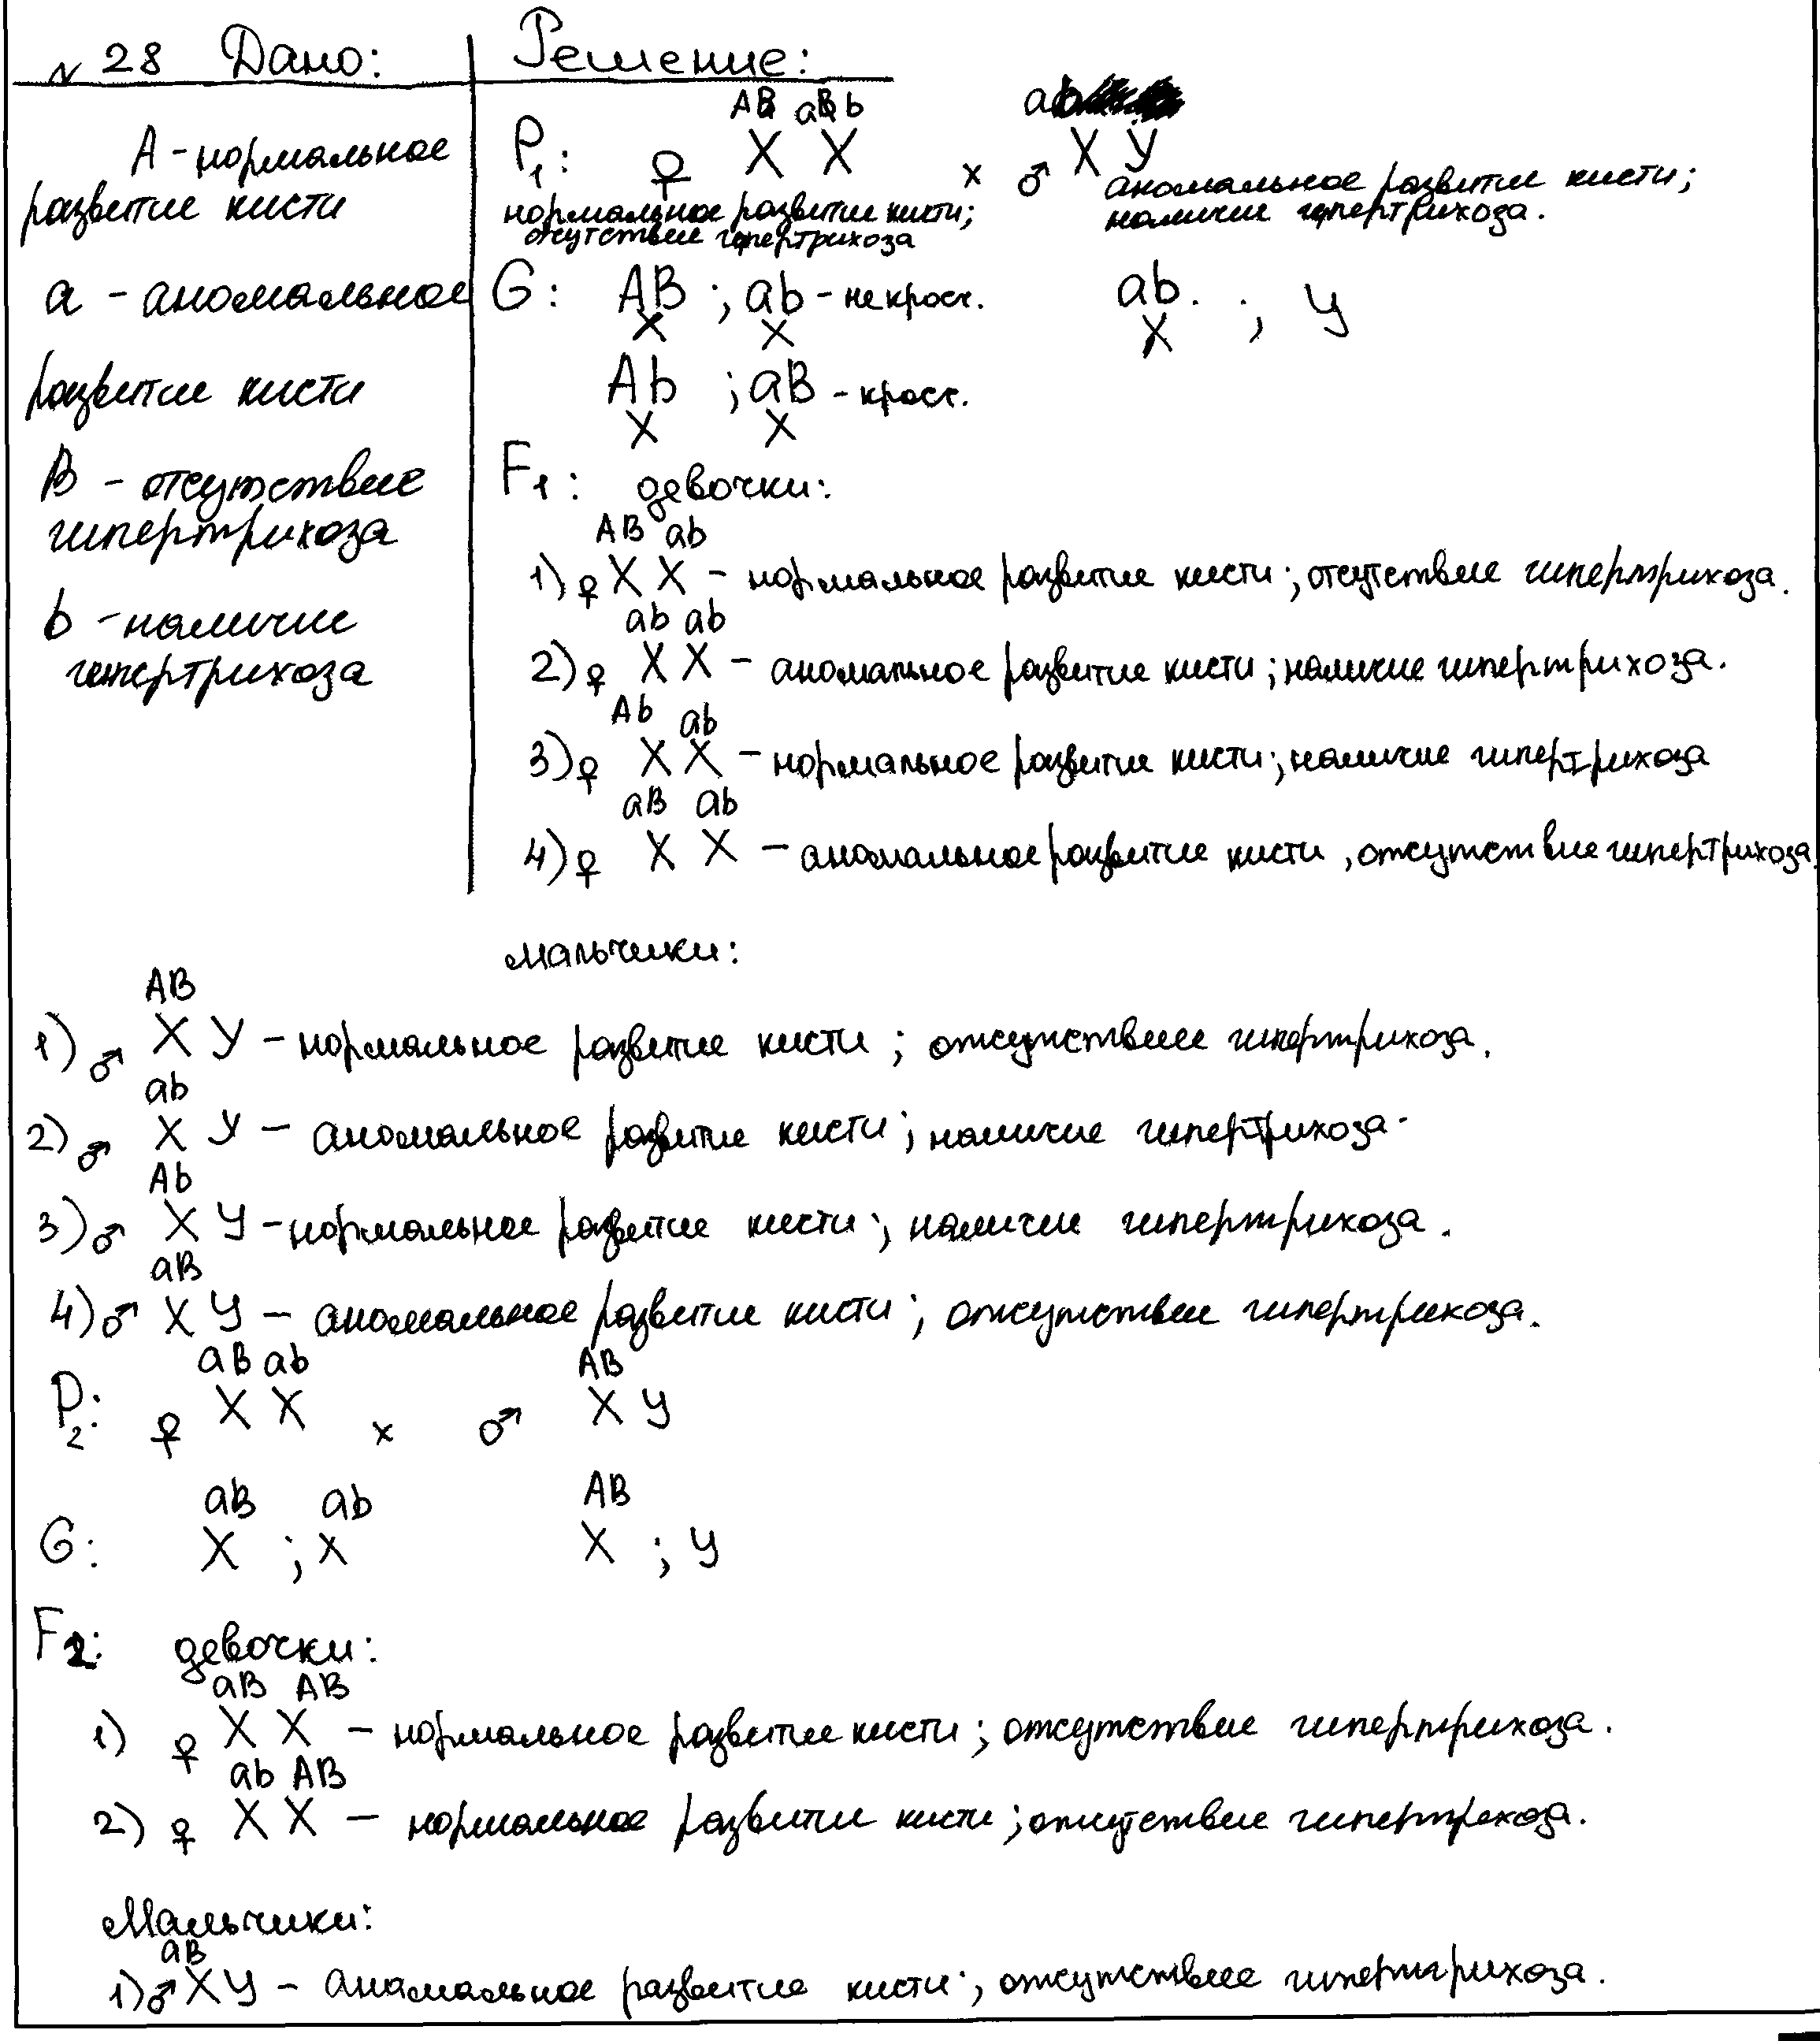 № 28 Дано:
Решение:
А - нормальное
развитие кисти
а - аномальное
развитие кисти
В - отсутствие
гипертрихоза
b - наличие
гипертрихоза
АВ ab ab
P1: ♀ X X x ♂ X У
нормальное развитие кисти;
отсутствие гипертрихоза
аномальное развитие кисти;
наличие гипертрихоза.
G: АВ ; ab - не кросс. ab. ; У
X X X
Аb ; аВ - кросс.
X X
F1: девочки:
АВ ab
1) ♀ X X - нормальное развитие кисти; отсутствие гипертрихоза.
ab ab
2) ♀ X X - аномальное развитие кисти; наличие гипертрихоза.
Ab ab
3) ♀ X X - нормальное развитие кисти; наличие гипертрихоза
aB ab
4) ♀ X X - аномальное развитие кисти, отсутствие гипертрихоза.
мальчики:
АВ
1) ♂ X У - нормальное развитие кисти; отсутствие гипертрихоза.
ab
2) ♂ X У - аномальное развитие кисти; наличие гипертрихоза.
Ab
3) ♂ X У - нормальное развитие кисти; наличие гипертрихоза.
aB
4) ♂ X У - аномальное развитие кисти; отсутствие гипертрихоза.
aB ab АВ
P2: ♀ X X x ♂ X У
aB ab АВ
G: X ; X X ; У
F2: девочки:
aB АВ
1) ♀ X X - нормальное развитие кисти; отсутствие гипертрихоза.
ab АВ
2) ♀ X X - нормальное развитие кисти; отсутствие гипертрихоза.
Мальчики:
aB
1) ♂ X У - аномальное развитие кисти; отсутствие гипертрихоза.